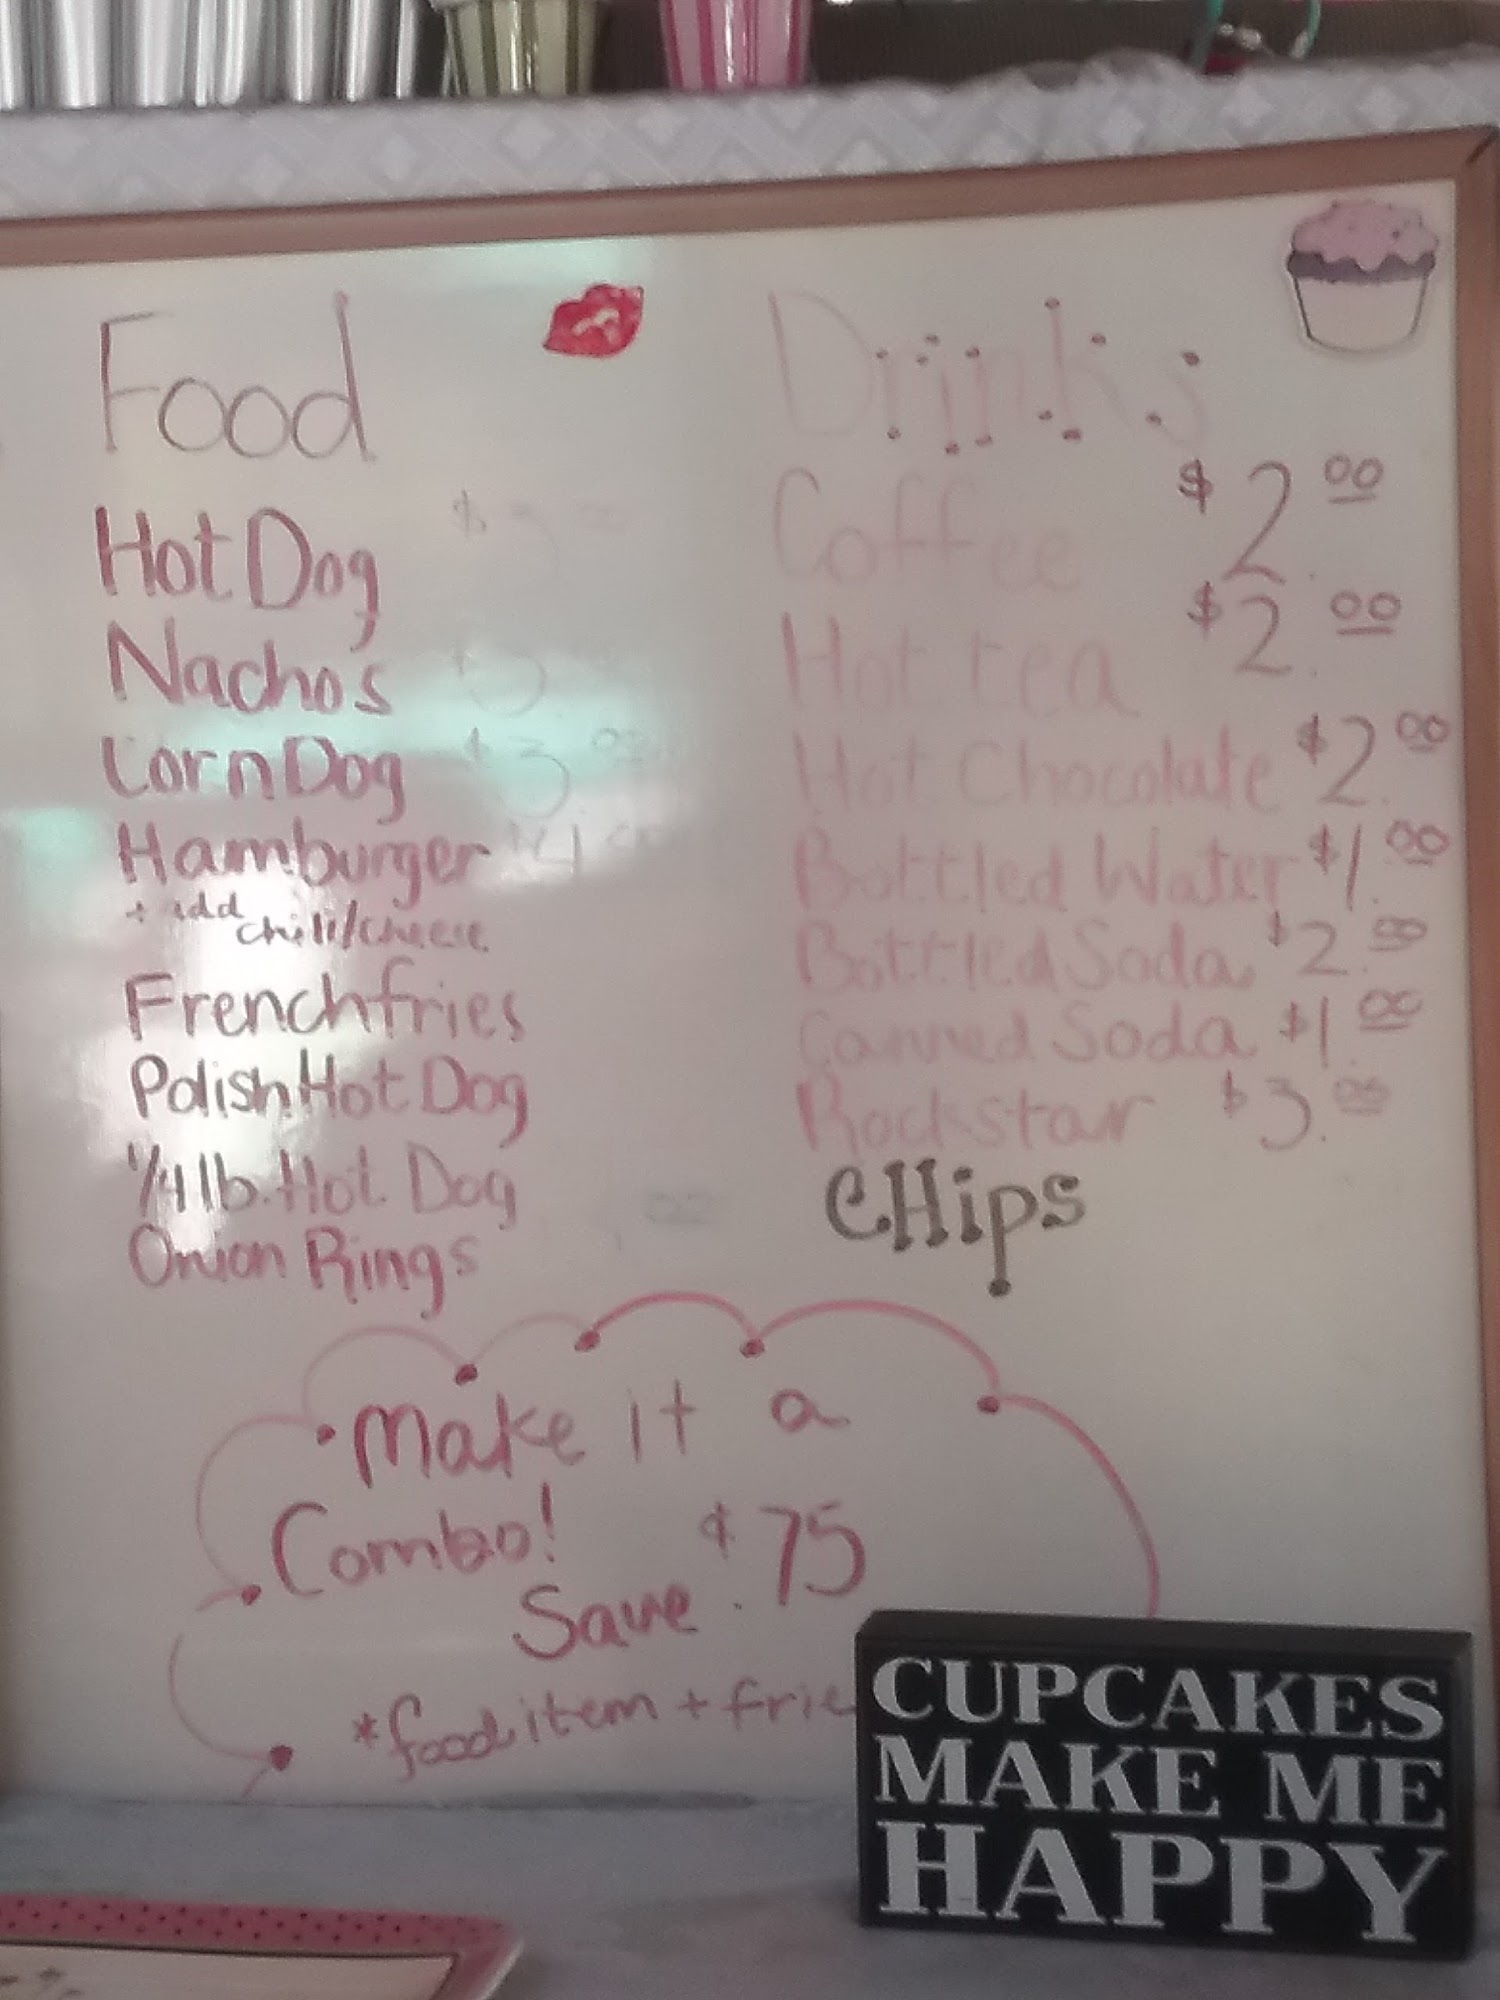 Food
Hot Dog
Nachos $3
Corn Dog $3.00
Hamburger $4
+ add chili/cheese
French fries
Polish Hot Dog
1/4 lb. Hot Dog
Onion Rings
Drinks
Coffee $2.00
Hot tea $2.00
Hot Chocolate $2.00
Bottled Water $1.00
Bottled Soda $2.00
Canned Soda $1.00
Rockstar $3.00
CHips
Make it a
Combo!
Save $.75
*food item + frie
CUPCAKES
MAKE ME
HAPPY